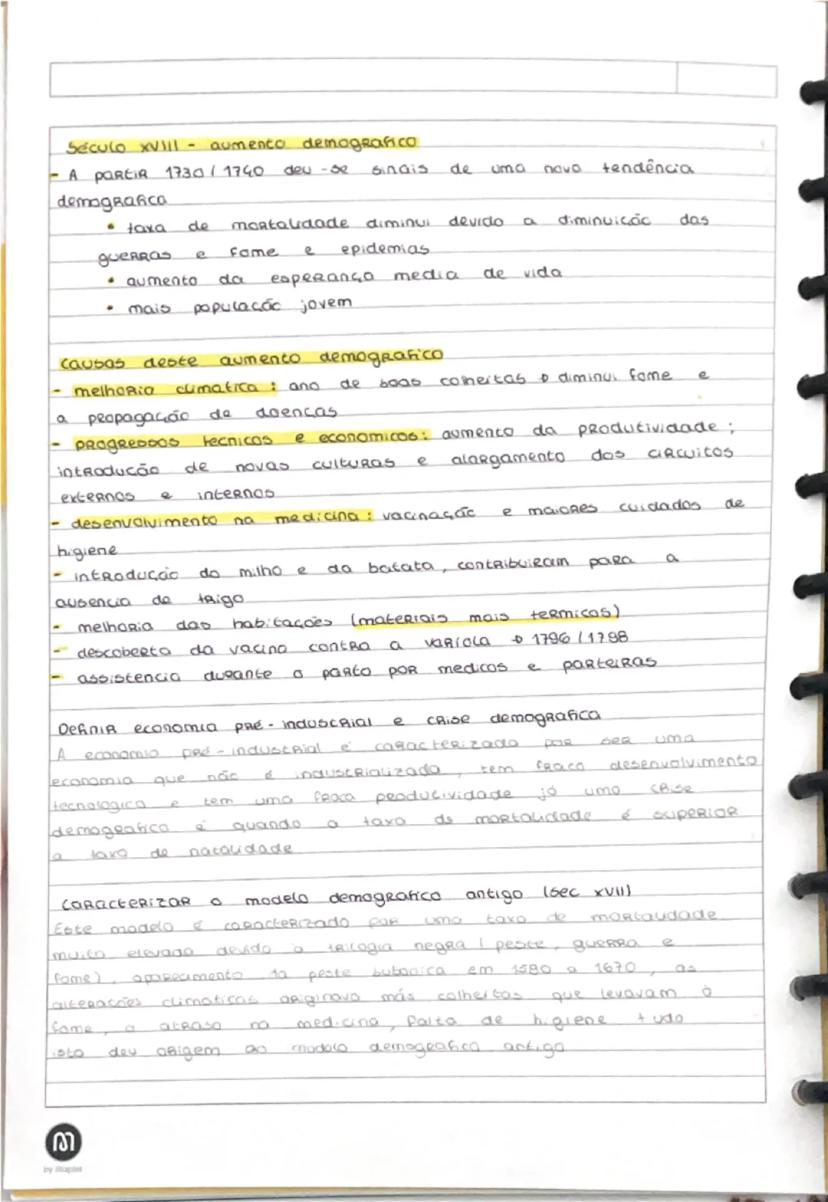 Século XVIII - aumento demografico
- A partir 1730/1740 deu-se sinais de uma nova tendência
demografica
• taxa de mortalidade diminui devido a diminuição das
guerras e fome e epidemias
• aumento da esperança media de vida
• mais população jovem
causas deste aumento demografico
- melhoria climatica: ano de boas colheitas → diminui fome e
a propagação de doenças
- progressos tecnicos e economicos: aumento da produtividade;
introdução de novas culturas e alargamento dos circuitos
externos e internos
- desenvolvimento na medicina: vacinação e maiores cuidados de
higiene
- introdução do milho e da batata, contribuiram para a
ausencia de trigo
- melhoria das habitações (materiais mais termicos)
- descoberta da vacina contra a varíola → 1796/1798
- assistencia durante o parto por medicos e parteiras
Definir economia pré-industrial e crise demografica
A economia pré-industrial é caracterizada por ser uma
economia que não é industrializada, tem fraco desenvolvimento
tecnologico e tem uma fraca produtividade já uma crise
demografica é quando a taxa de mortalidade é superior
a taxa de natalidade
Caracterizar o modelo demografico antigo (sec XVII)
Este modelo é caracterizado por uma taxa de mortalidade
muito elevada devido à trilogia negra (peste, guerra e
fome), aparecimento da peste bubonica em 1580 a 1670, as
alterações climaticas originava más colheitas que levavam à
fome, o atraso na medicina, falta de higiene tudo
isto deu origem ao modelo demografico antigo
M
by staples